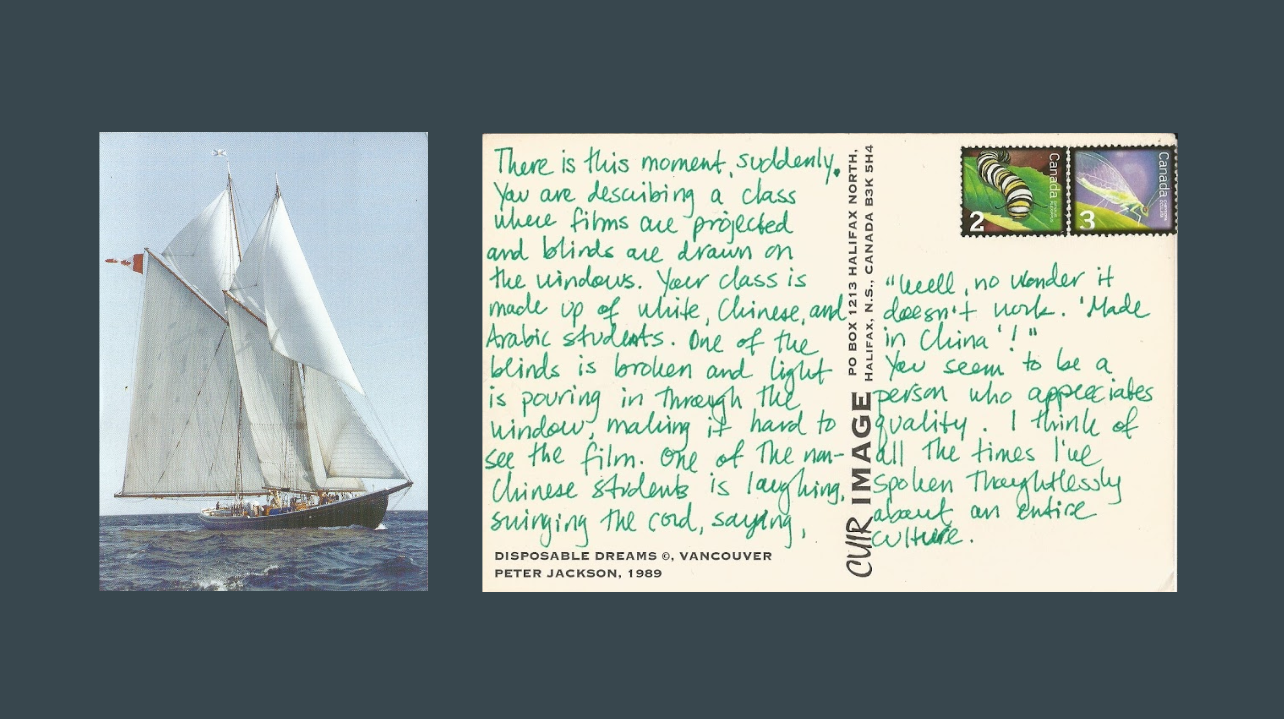 There is this moment, suddenly.
You are describing a class
where films are projected
and blinds are drawn on
the windows. Your class is
made up of white, Chinese, and
Arabic students. One of the
blinds is broken and light
is pouring in through the
window, making it hard to
see the film. One of the non-
Chinese students is laughing,
swinging the cord, saying,
DISPOSABLE DREAMS ©, VANCOUVER
PETER JACKSON, 1989
CUIR IMAGE
PO BOX 1213 HALIFAX NORTH,
HALIFAX, N.S., CANADA B3K 5H4
Canada
2
Canada
3
"Well, no wonder it
doesn't work. 'Made
in China'!"
You seem to be a
person who appreciates
quality. I think of
all the times I've
spoken thoughtlessly
about an entire
culture.